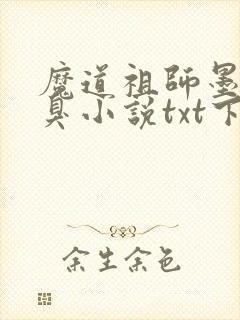 魔道祖師墨
臭小說txt下
余生余色